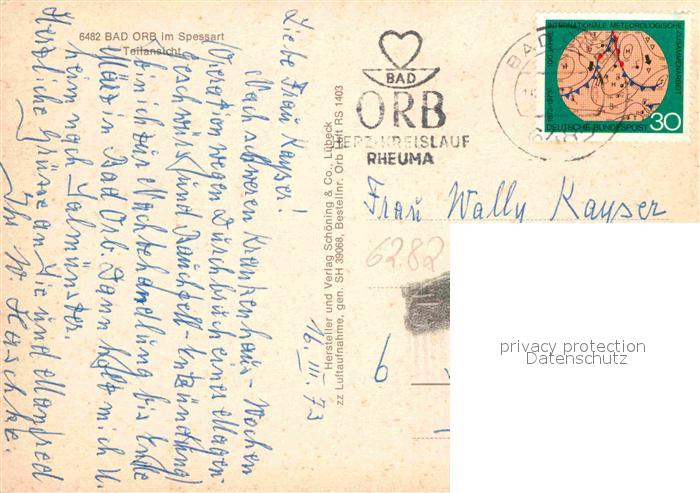 6482 BAD ORB im Spessart
Teilansicht
Liebe Frau Kayser!
Nach schweren Krankenhaus-Wochen
(Operation wegen Durchbruch eines Magen-
geschwürs und Bauchfell-Entzündung)
bin ich zur Nachbehandlung bis Ende
März in Bad Orb. Dann holt mich U.
heim nach Salmünster.
Herzliche Grüsse an Sie und Manfred
Ihr W.
16. III. 73
Hersteller und Verlag Schöning & Co., Lübeck
zz Luftaufnahme, gen. SH 39068, Bestellnr. Orb Heft RS 1403
BAD
ORB
HERZ-KREISLAUF
RHEUMA
BAD
6482
100 JAHRE INTERNATIONALE METEOROLOGISCHE ZUSAMMENARBEIT
1873-1973
DEUTSCHE BUNDESPOST 30
Frau Wally Kayser
6282
6
privacy protection
Datenschutz